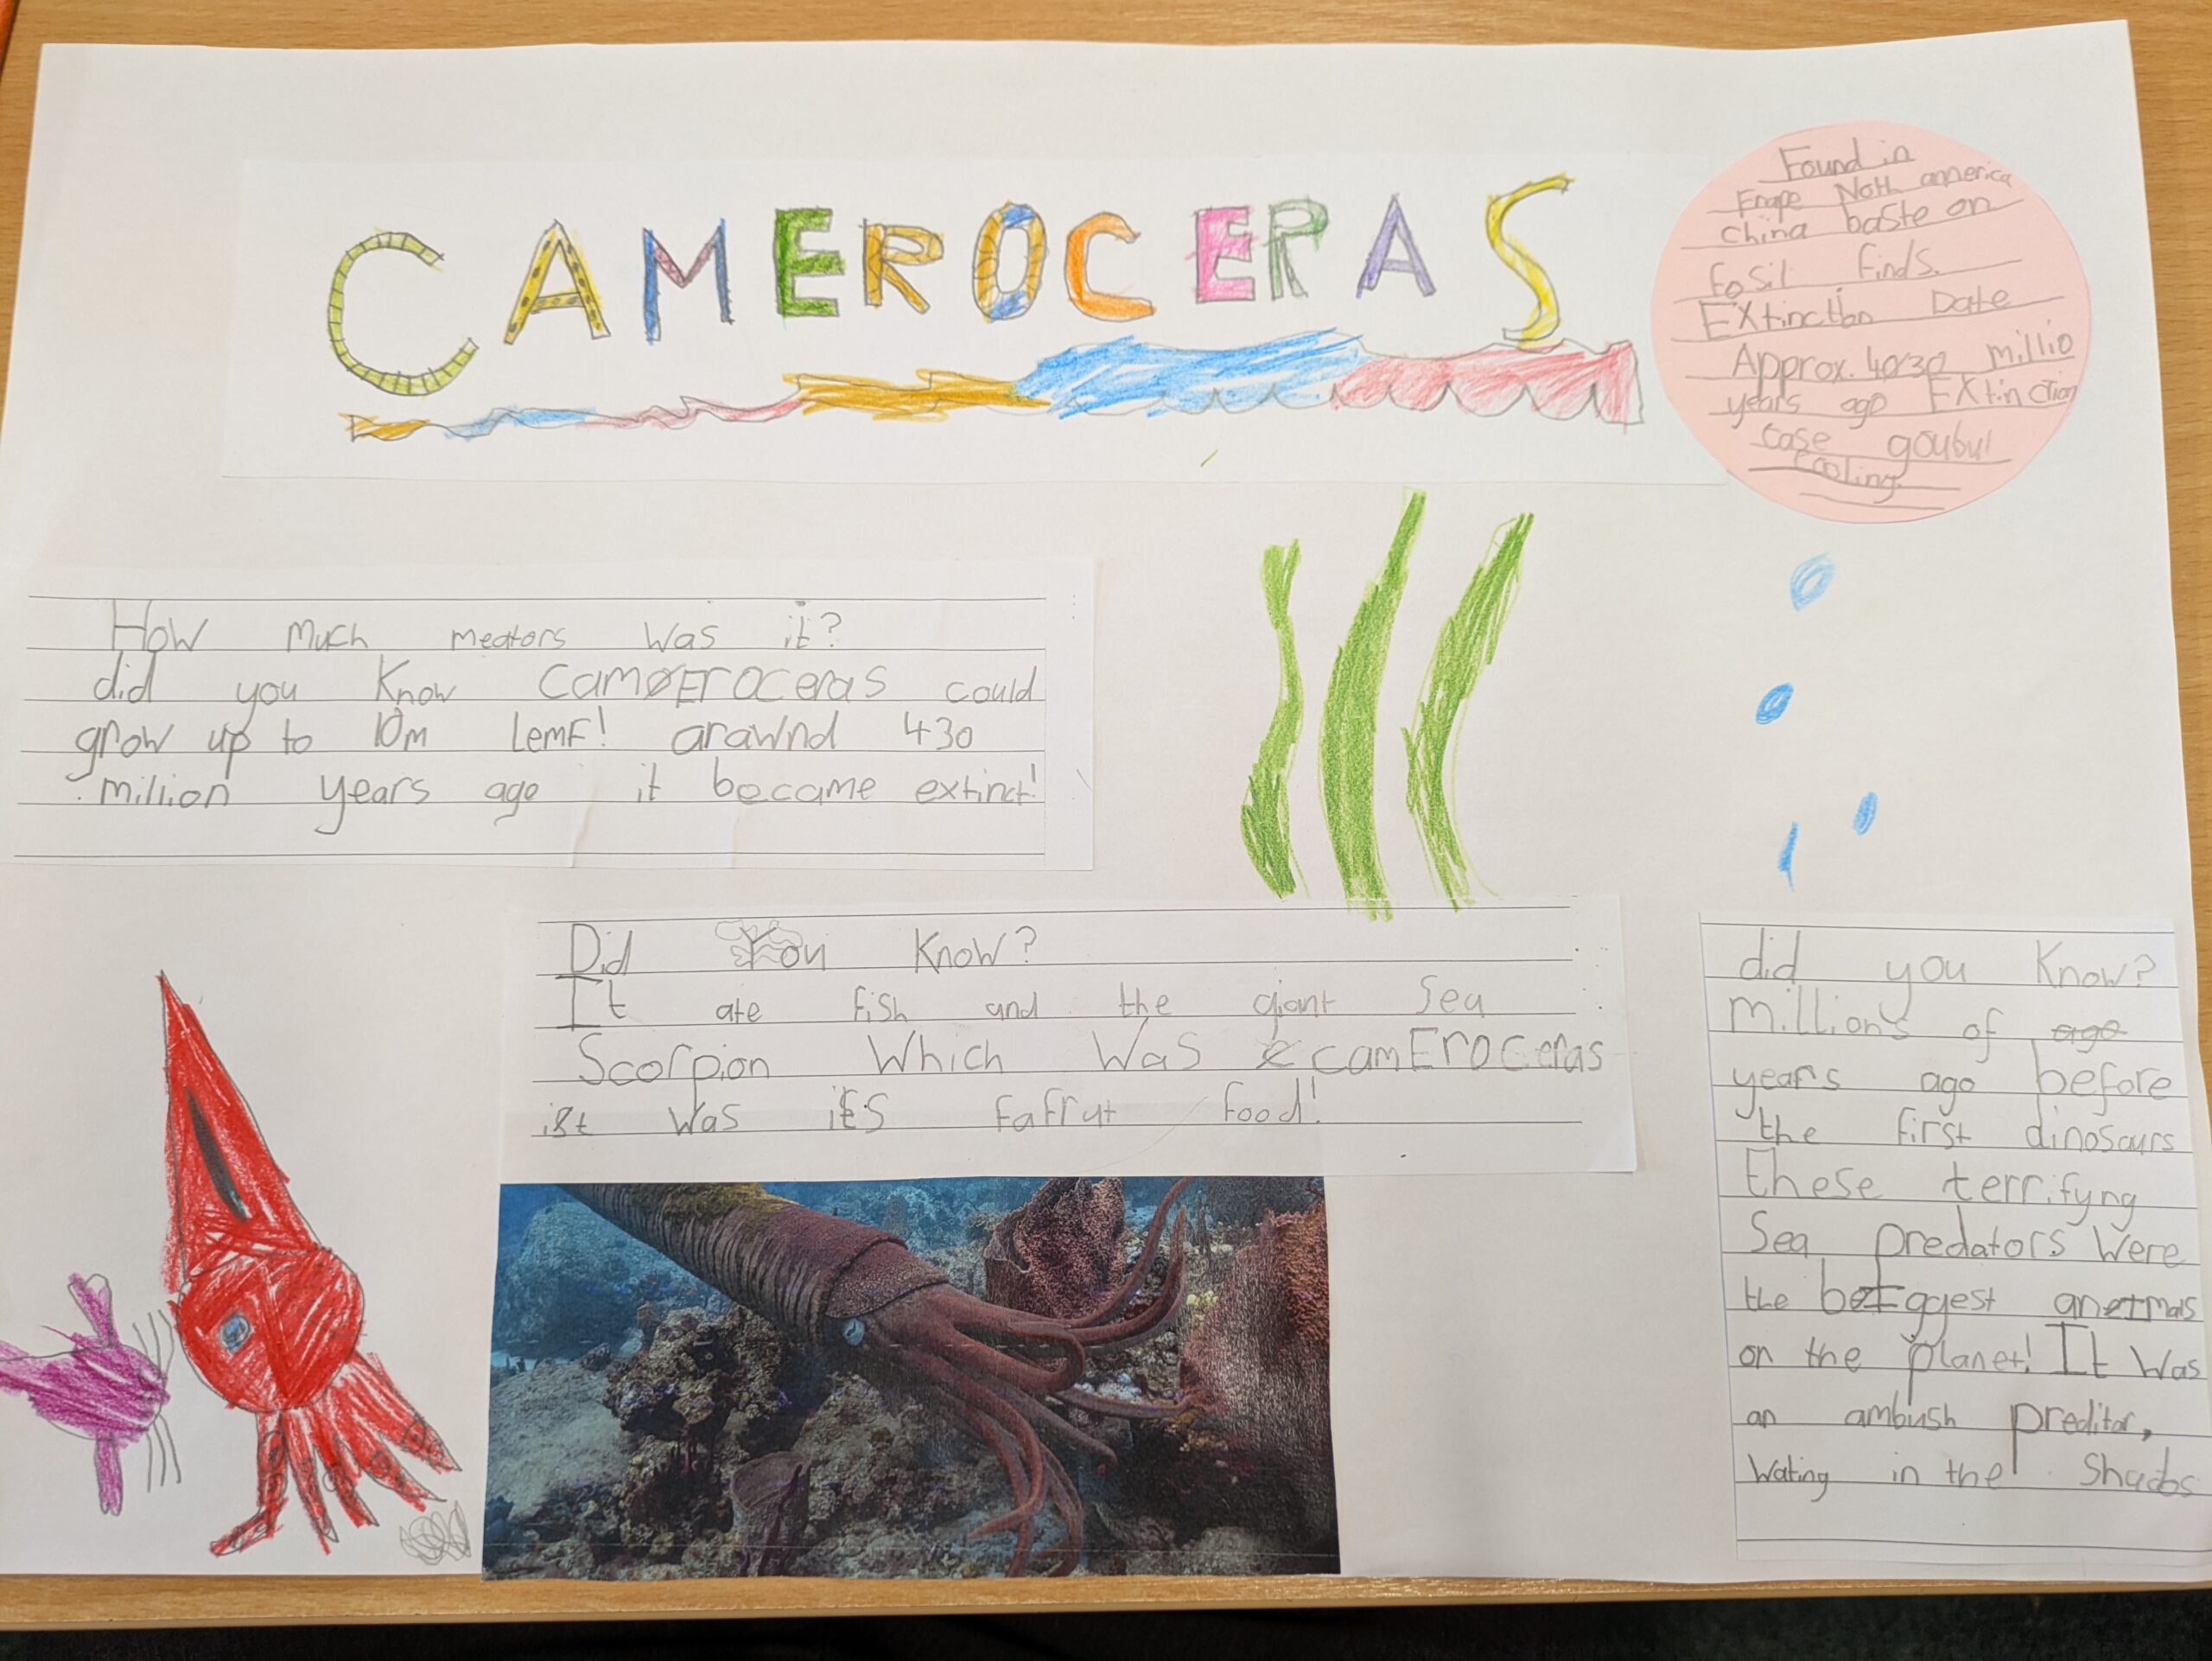 CAMEROCERAS
Found in
Erope Noth america
china baste on
fosil finds.
EXtinction Date
Approx. 40/30 millio
years ago EXtinction
case goubul
cooling
How much meators was it?
did you know camEroceras could
grow up to 10m lemf! arawnd 430
million years ago it became extinct!
Did You know?
It ate fish and the giant sea
Scorpion which was camEroceras
it was its fafrut food!
did you know?
millions of ago
years ago before
the first dinosaurs
these terrifyng
sea predators were
the biggest anemals
on the planet! It was
an ambush preditor,
wating in the shados